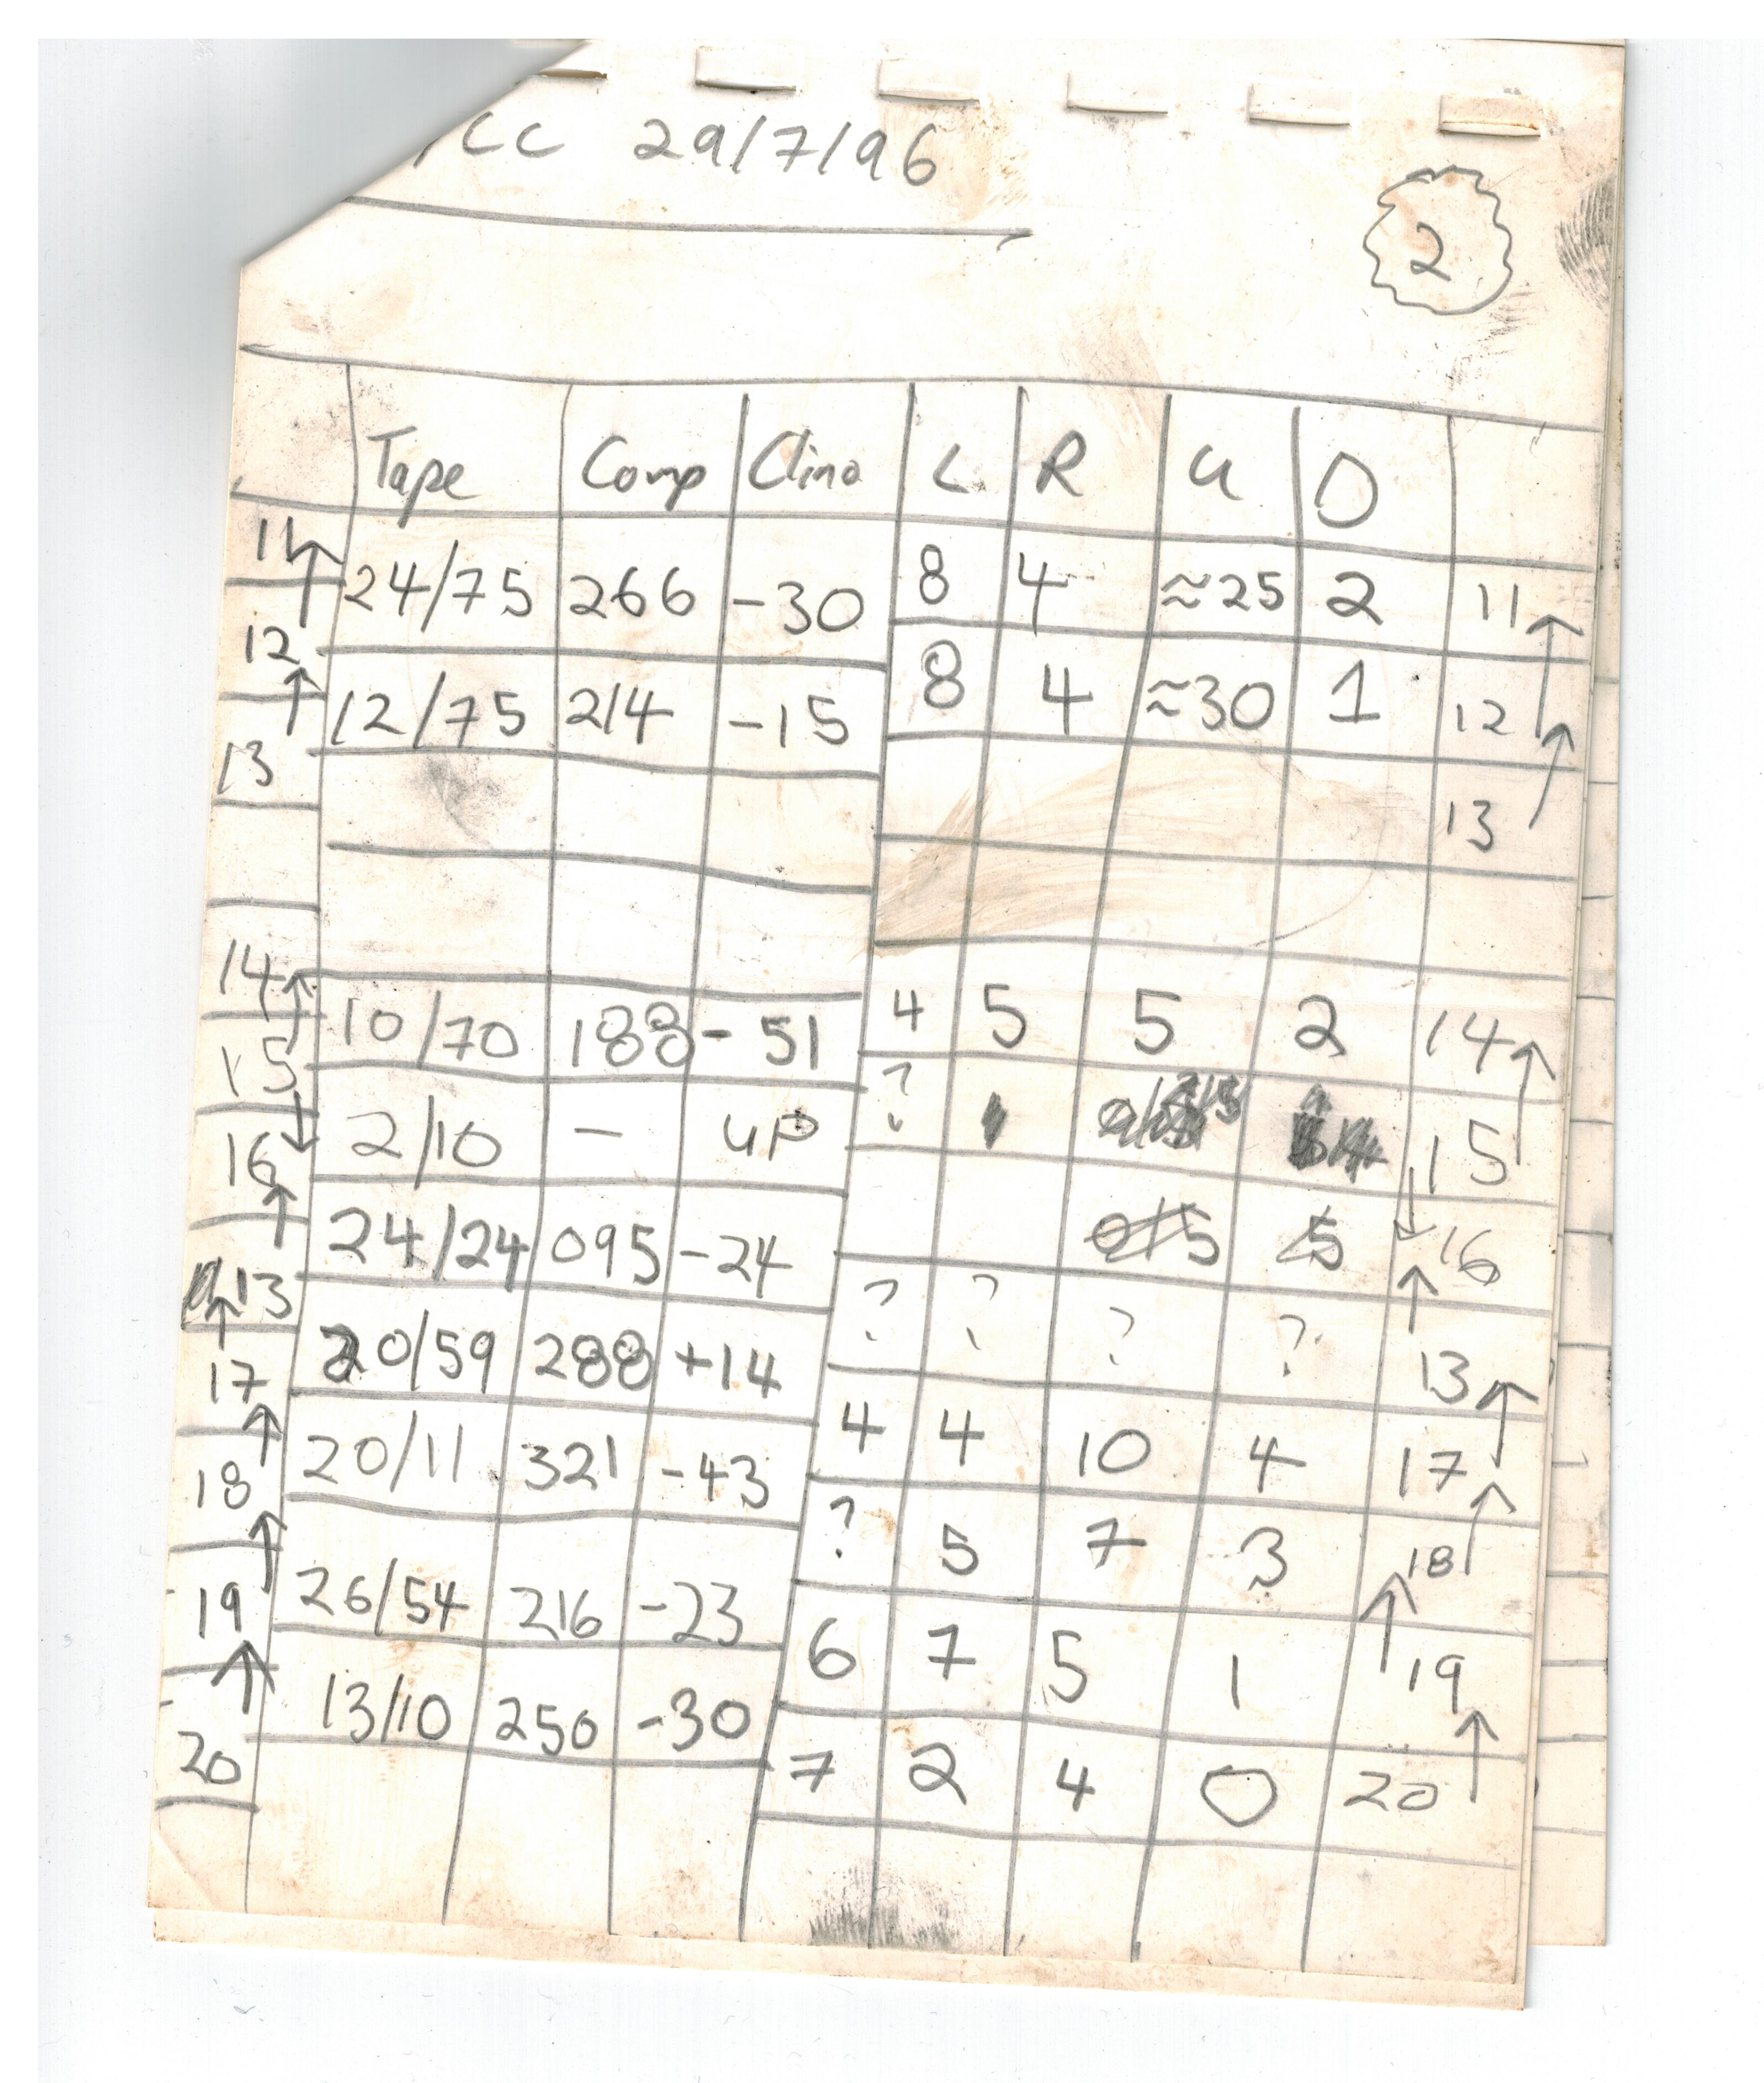 CC 29/7/96
2
Tape Comp Clino L R U D
11 24/75 266 -30 8 4 ≈25 2 11
12 12/75 214 -15 8 4 ≈30 1 12
13 13
14 10/70 188 - 51 4 5 5 2 14
15 2/10 - UP ? 15
16 24/24 095 -24 16
13 20/59 288 +14 ? ? ? ? 13
17 20/11 321 -43 4 4 10 4 17
18 26/54 216 -23 ? 5 7 3 18
19 13/10 250 -30 6 7 5 1 19
20 7 2 4 0 20